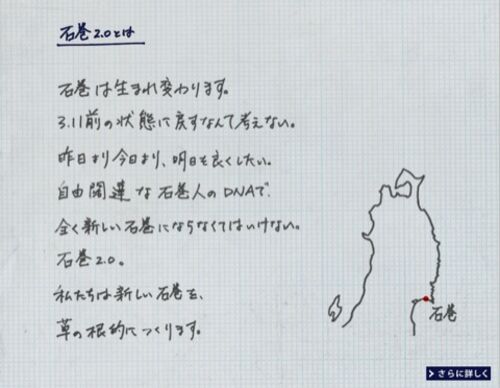 石巻2.0とは
石巻は生まれ変わります。
3.11前の状態に戻すなんて考えない。
昨日より今日より、明日を良くしたい。
自由闊達な石巻人のDNAで
全く新しい石巻にならなくてはいけない。
石巻2.0。
私たちは新しい石巻を、
草の根的につくります。
石巻
さらに詳しく